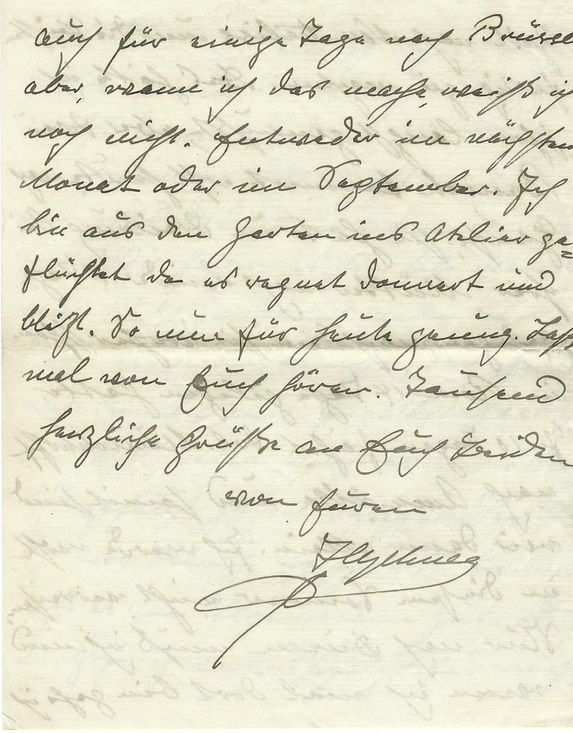 auch für einige Tage nach Brüssel
aber, wann ich das mache, weiß ich
noch nicht. Entweder im nächsten
Monat oder im September. Ich
bin aus dem Garten ins Atelier ge=
flüchtet da es regnet donnert und
blitzt. So nun für heute genug. Laßt
mal von Euch hören. Tausend
herzliche Grüße an Euch beiden
von Euren